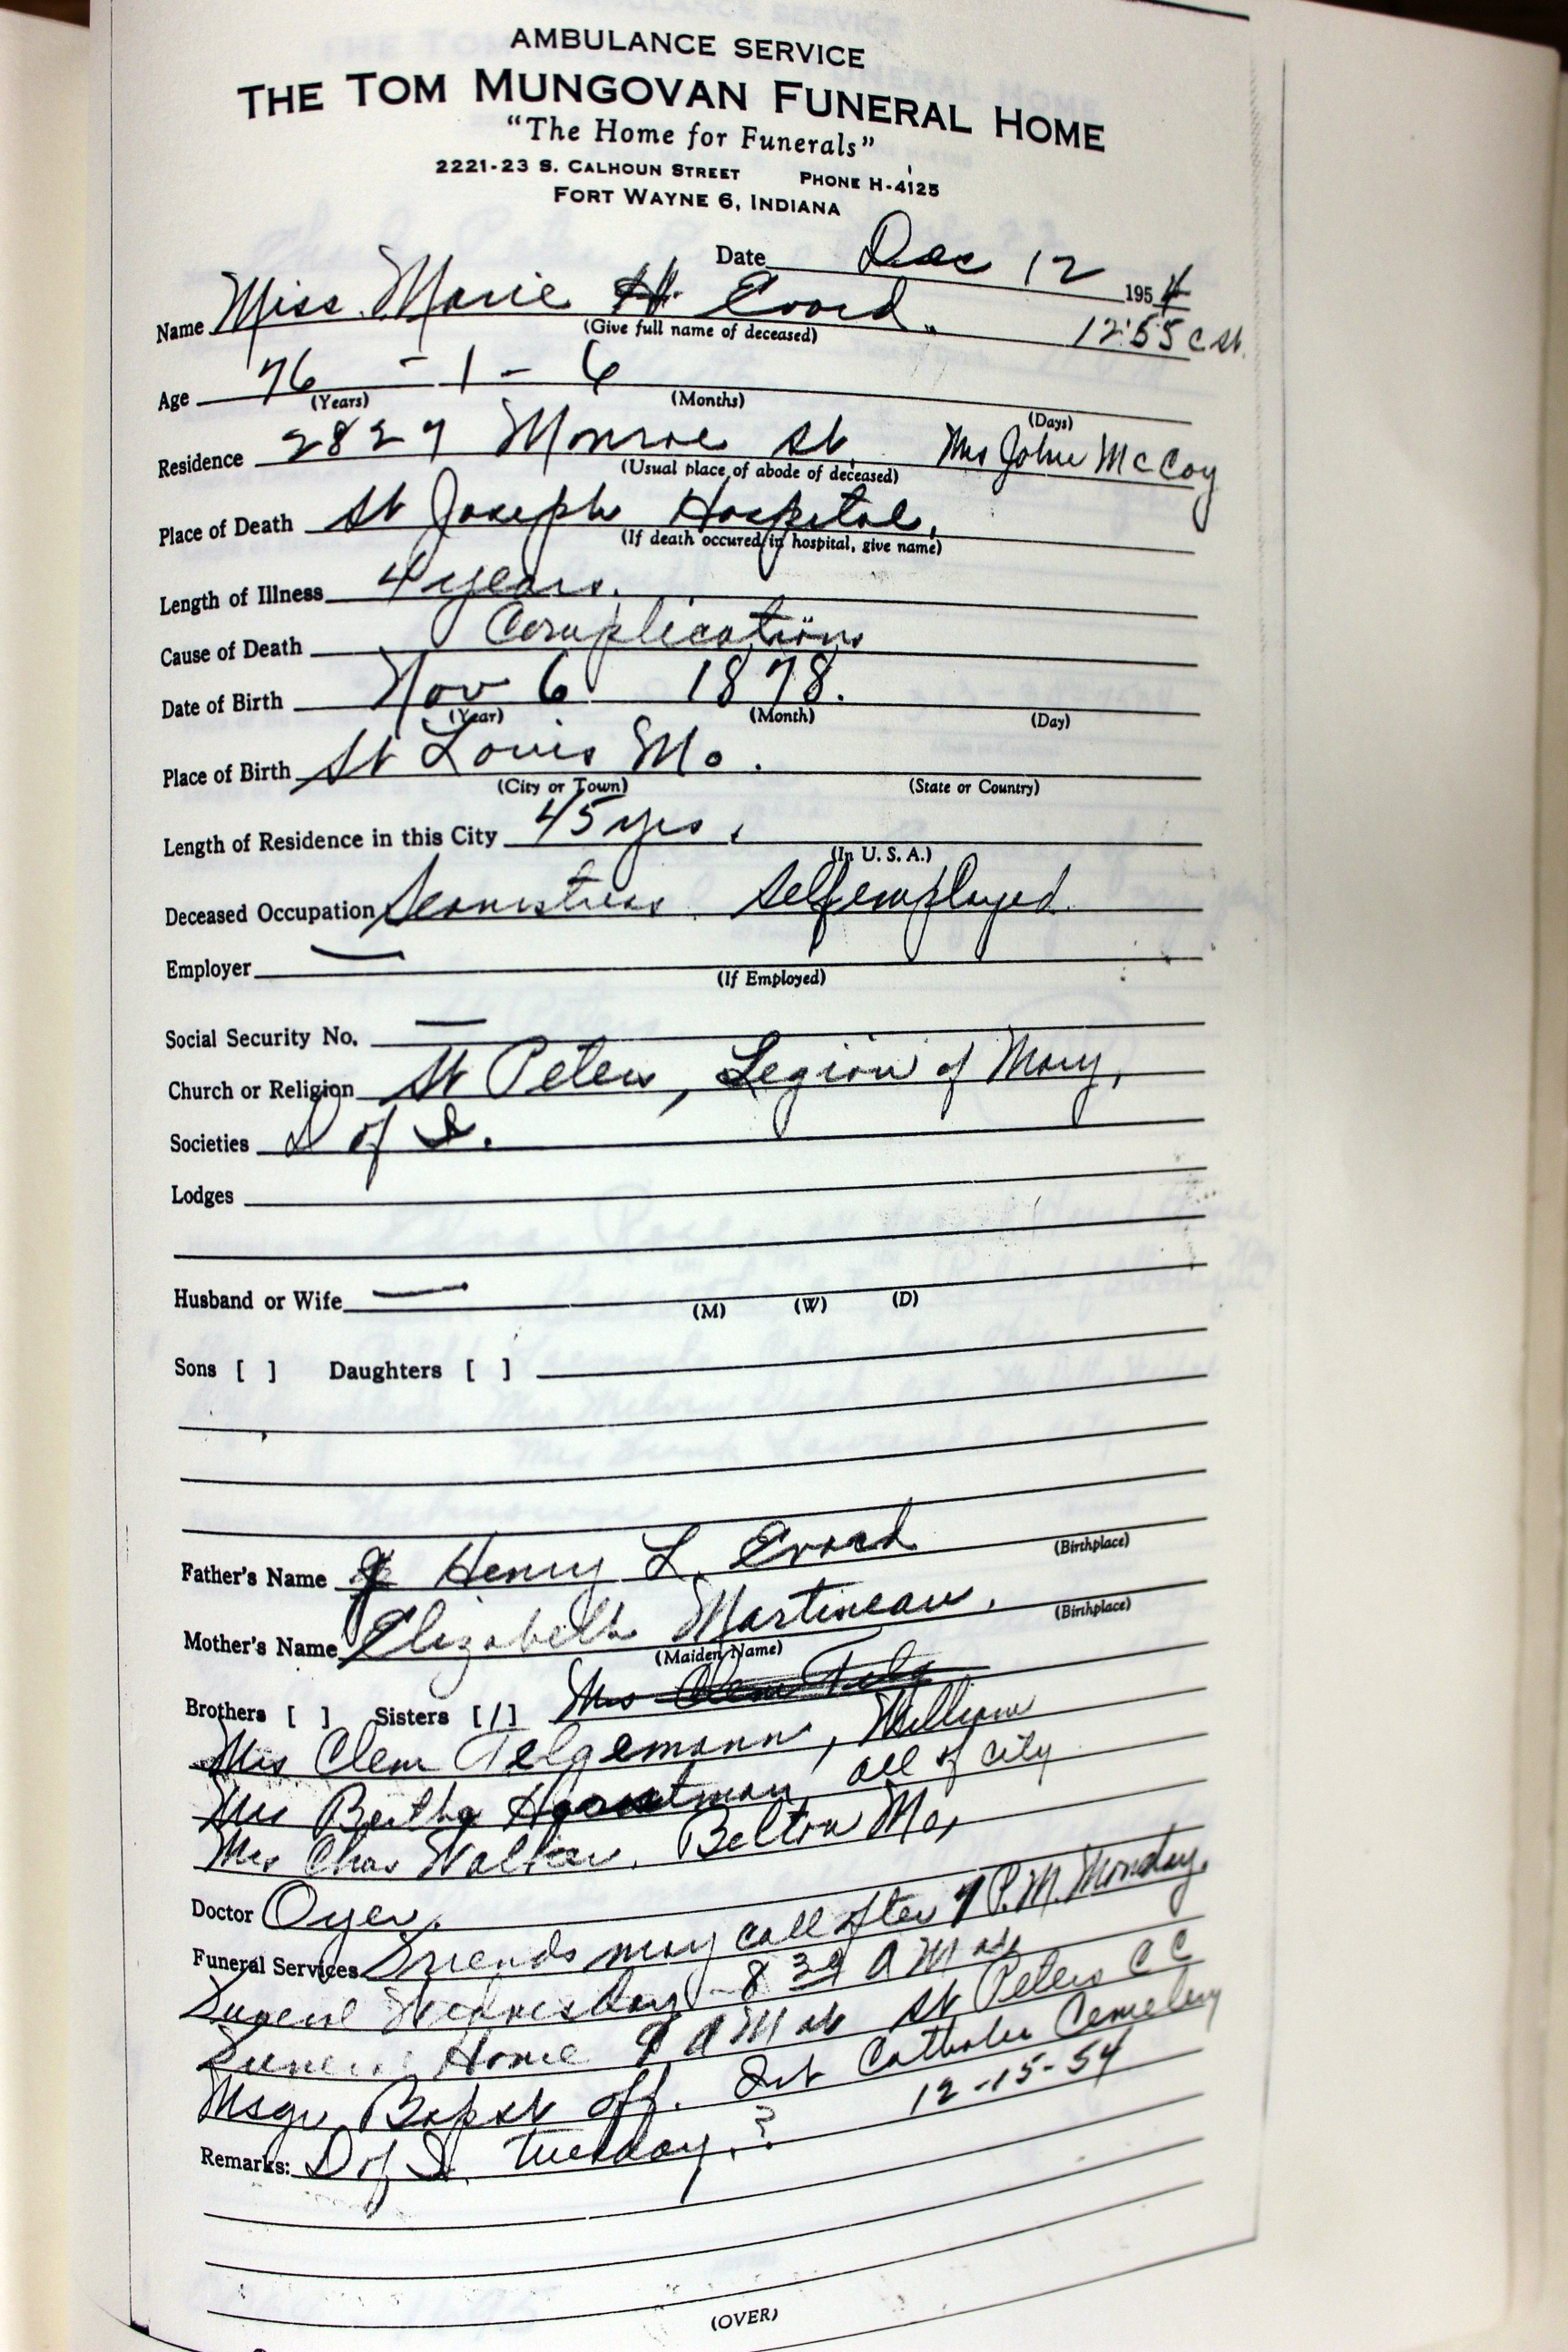 AMBULANCE SERVICE
THE TOM MUNGOVAN FUNERAL HOME
"The Home for Funerals"
2221-23 S. CALHOUN STREET PHONE H-4125
FORT WAYNE 6, INDIANA
Date Dec 12 1954
Name Miss Marie H Evard. 12:55 C St.
(Give full name of deceased)
Age 76 - 1 - 6
(Years) (Months) (Days)
Residence 2827 Monroe St. Mrs John McCoy
(Usual place of abode of deceased)
Place of Death St Joseph Hospital,
(If death occured in hospital, give name)
Length of Illness 4 years.
Cause of Death Complications
Date of Birth Nov 6 1878.
(Year) (Month) (Day)
Place of Birth St Louis Mo.
(City or Town) (State or Country)
Length of Residence in this City 45 yrs.
(In U. S. A.)
Deceased Occupation Seamstress Self employed
Employer —
(If Employed)
Social Security No. —
Church or Religion St Peters, Legion of Mary,
Societies D of I.
Lodges
Husband or Wife — (M) (W) (D)
Sons [ ] Daughters [ ]
Father's Name Henry L. Evard (Birthplace)
Mother's Name Elizabeth Martineau. (Birthplace)
(Maiden Name)
Brothers [ ] Sisters [/] Mrs Clem Telg
Mrs Clem Telgemann, William
Mrs Bertha Horstman all of city
Mrs Chas Walker, Belton Mo,
Doctor Oyer.
Funeral Services Friends may call after 7 P.M. Monday.
Funeral Wednesday - 8 30 A M at
Funeral Home 9 A M at St Peters C C
Msgr Bapst off. Int Catholic Cemetery
12-15-54
Remarks: D of I. Tuesday. ?
(OVER)